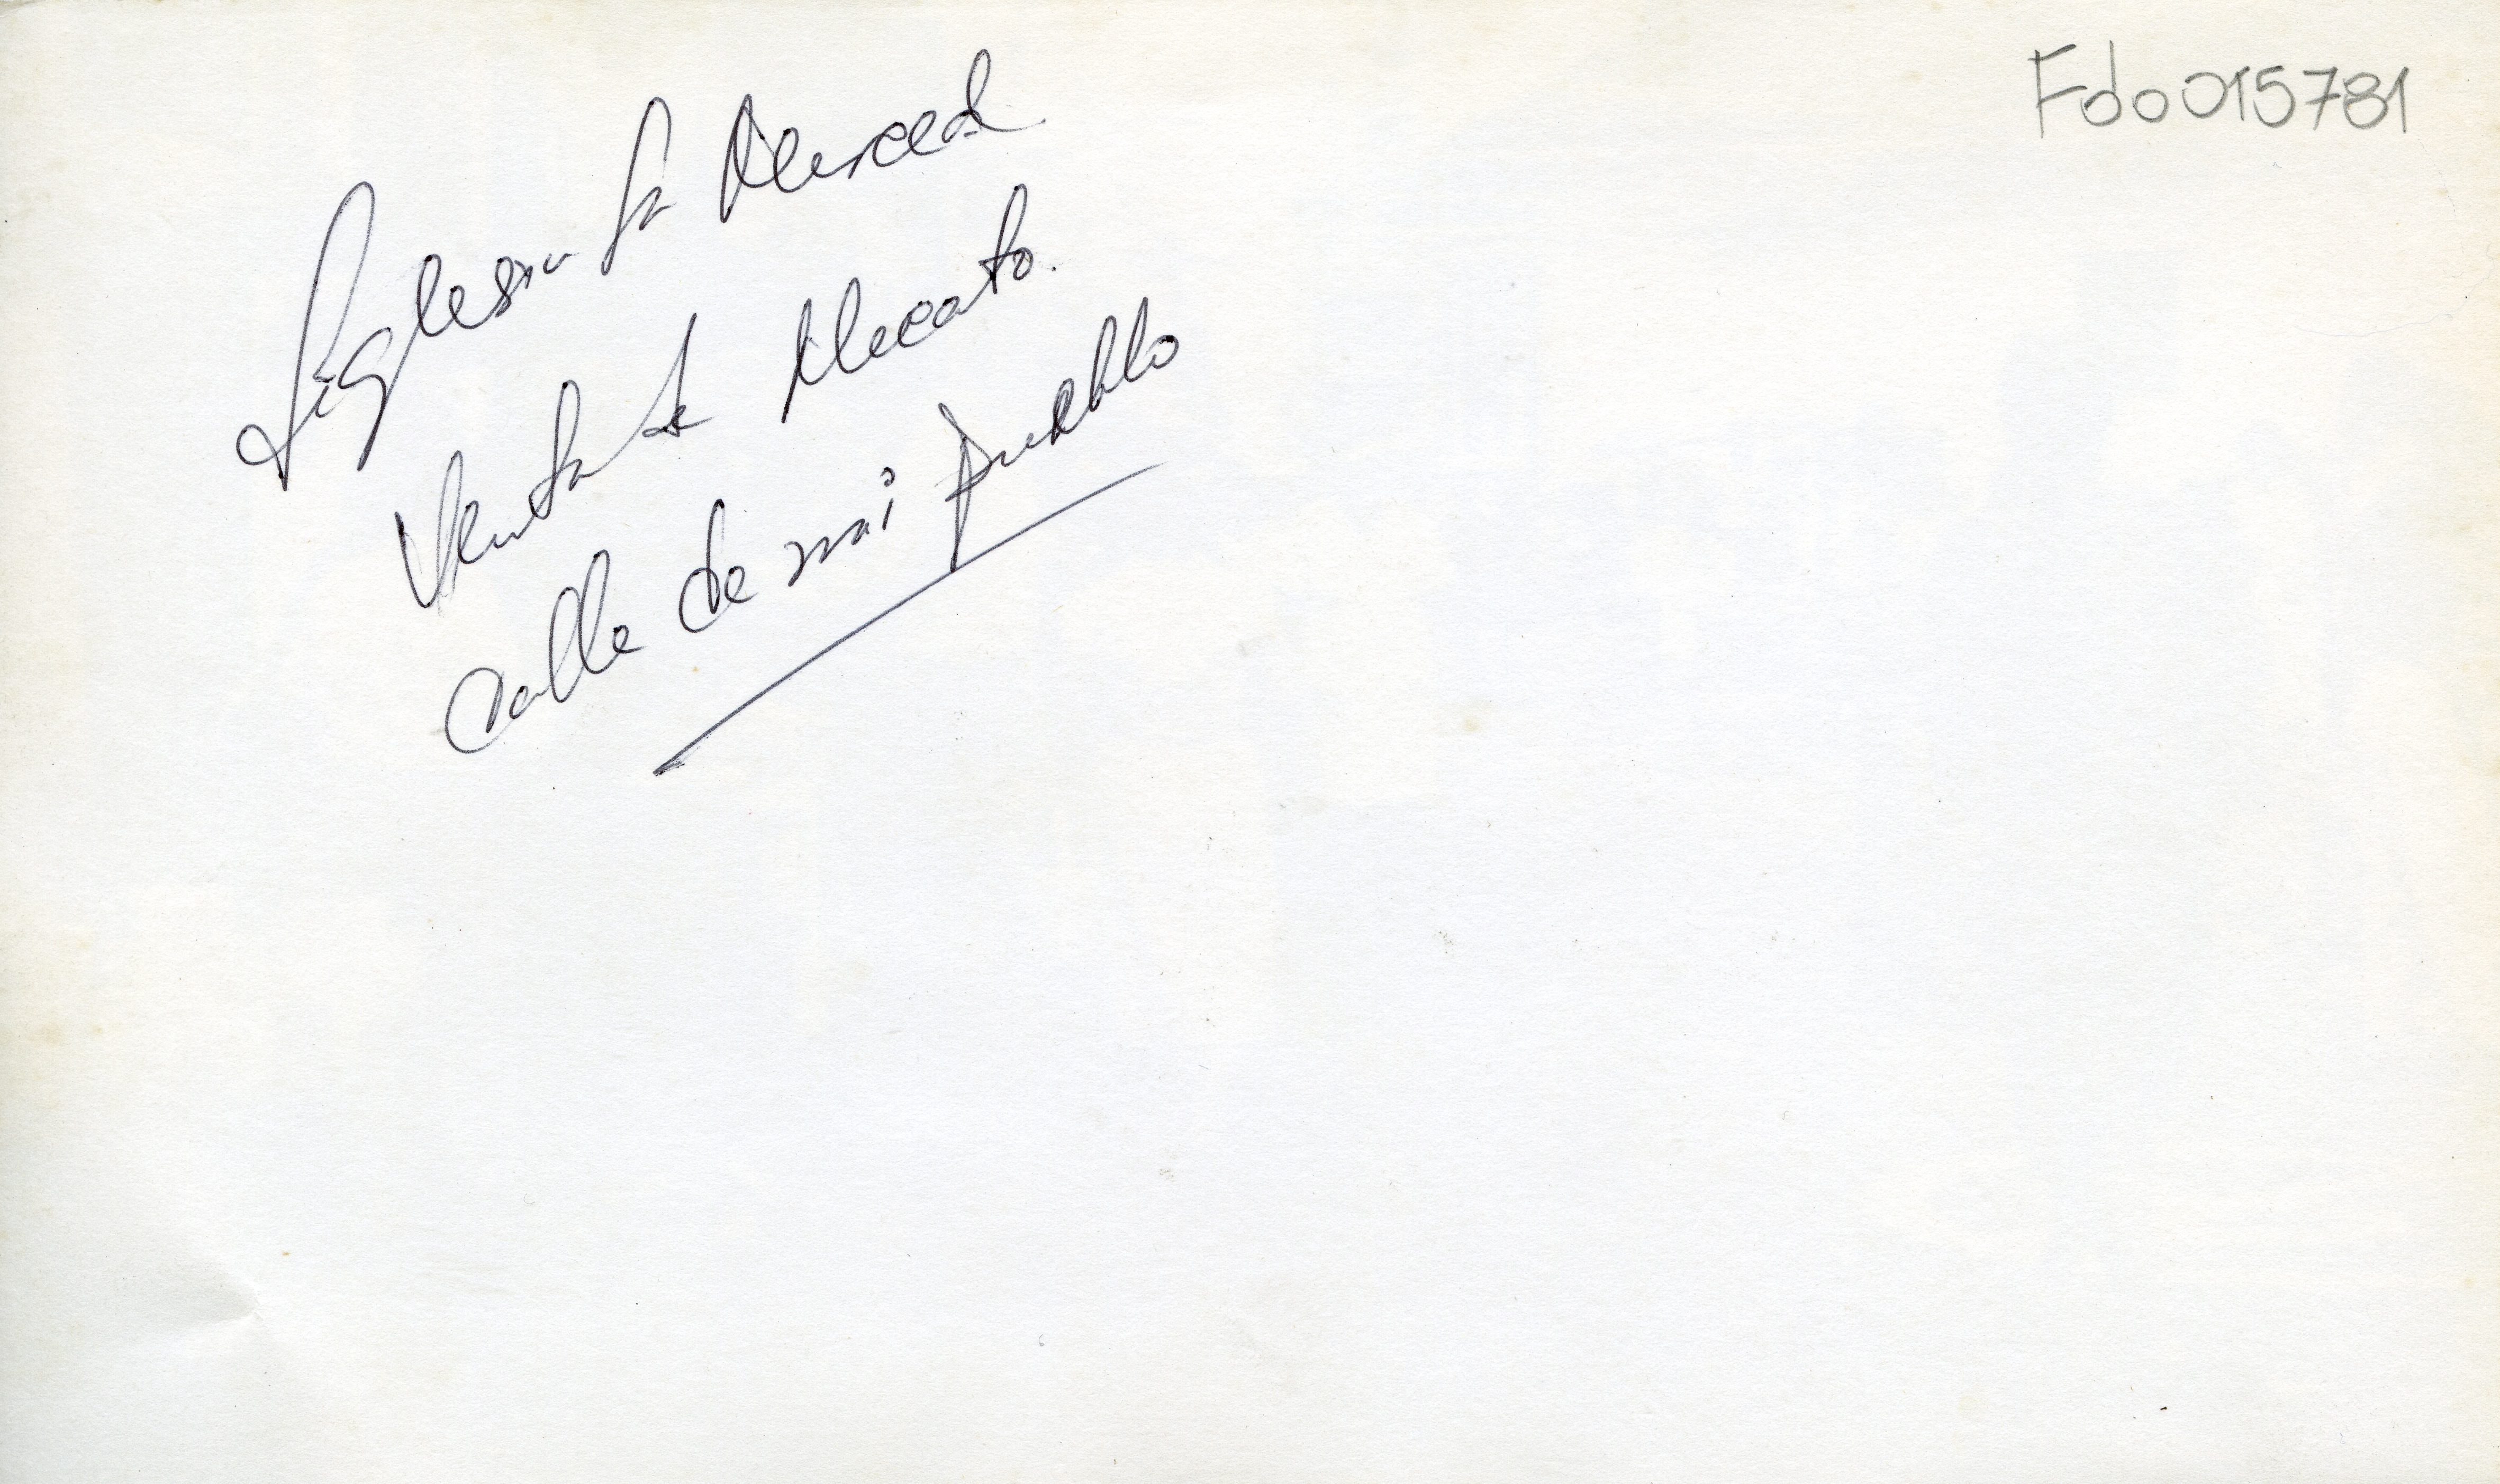 Fdo015781
Iglesia La Merced
Venta de Mecato.
Calle de mi pueblo